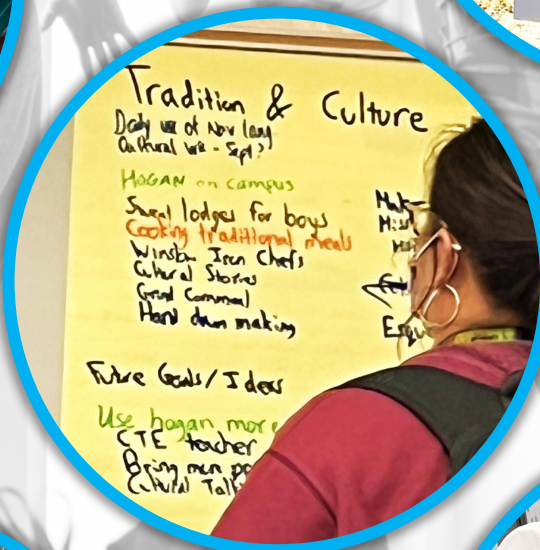 Tradition & Culture
Daily use of Nav lang
Cultural wk - Sept?
HOGAN on campus
Sweat lodges for boys
Cooking traditional meals
Winslow Iron Chefs
Cultural Stories
Grind Cornmeal
Hand drum making
Mak
Miss
Future Goals/Ideas
Use hogan more
CTE teacher
Bring more
Cultural Talk